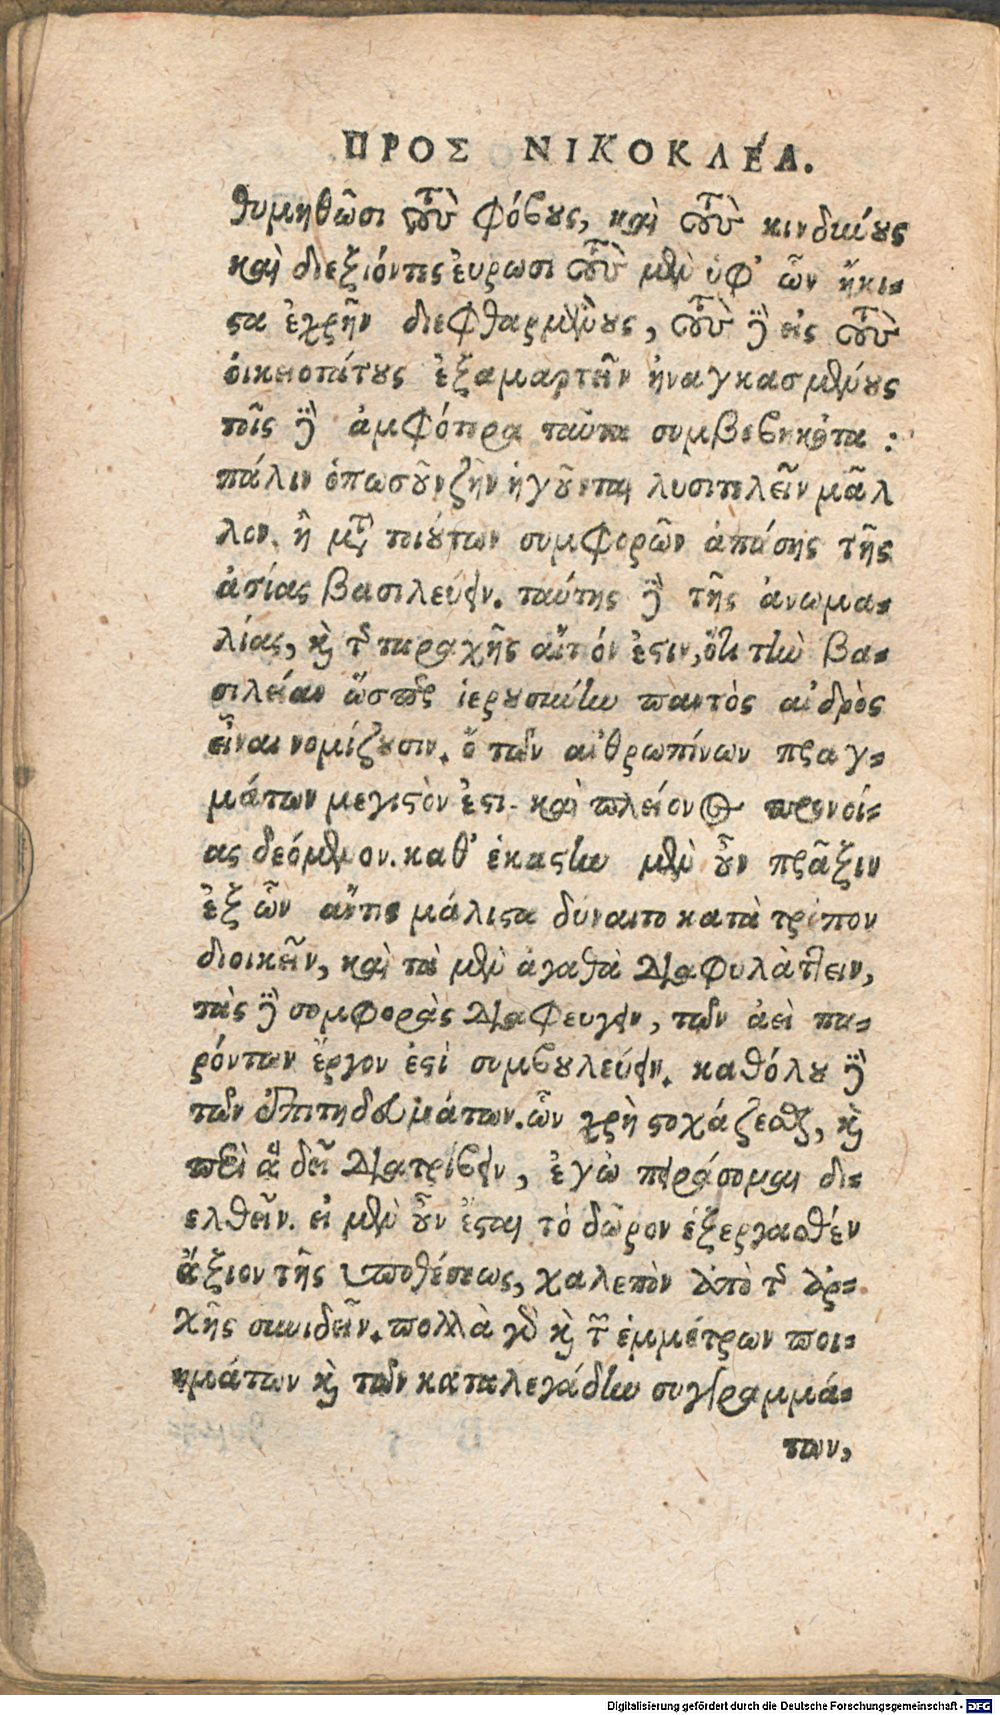 ΠΡΟΣ ΝΙΚΟΚΛΕΑ.
θυμηθῶσι τοὺς φόβους, καὶ τοὺς κινδύνους
καὶ διεξιόντες εὑρωσι τοὺς μὲν ὑφ' ὧν ἥκι-
στα ἐχρῆν διεφθαρμένους, τοὺς δὲ εἰς τοὺς
ὀικειοτάτους ἐξαμαρτεῖν ἠναγκασμένους
τοῖς δὲ ἀμφότερα ταῦτα συμβεβηκότα :
πάλιν ὁπωσοῦν ζῆν ἡγοῦνται λυσιτελεῖν μᾶλ
λον. ἢ μετὰ τοιούτων συμφορῶν ἁπάσης τῆς
ἀσίας βασιλεύειν. ταύτης δὲ τῆς ἀνωμα-
λίας, καὶ τῆς ταραχῆς αἴτιόν ἐστιν, ὅτι τὴν βα-
σιλείαν ὥσπερ ἱερωσύνην παντὸς ἀνδρὸς
εἶναι νομίζουσιν. ὃ τῶν ἀνθρωπίνων πραγ-
μάτων μεγιστὸν ἐστι. καὶ πλείονος προνοί-
ας δεόμενον. καθ' ἑκαστην μὲν οὖν πρᾶξιν
ἐξ ὧν ἄντις μάλιστα δύναιτο κατὰ τρόπον
διοικεῖν, καὶ τὰ μὲν ἀγαθὰ διαφυλάττειν,
τὰς δὲ συμφορὰς διαφευγειν, τῶν ἀεὶ πα-
ρόντων ἔργον ἐστὶ συμβουλεύειν. καθόλου δὲ
τῶν ἐπιτηδευμάτων. ὧν χρὴ στοχάζεσθαι, καὶ
περὶ ἃ δεῖ διατρίβειν, ἐγὼ πειράσομαι δι-
ελθεῖν. εἰ μὲν οὖν ἔσται τὸ δῶρον ἐξεργασθέν
ἄξιον τῆς ὑποθέσεως, χαλεπὸν ἀπὸ τῆς ἀρ-
χῆς συνιδεῖν. πολλὰ γὰρ καὶ τῶν ἐμμέτρων ποι-
ημάτων καὶ τῶν καταλεγάδην συγγραμμά-
των,
Digitalisierung gefördert durch die Deutsche Forschungsgemeinschaft - DFG